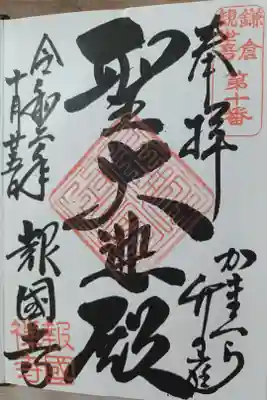 鎌倉
観世音
第十番
奉拝
かまくら
竹の庭
聖大悲殿
令和六年
十月廿
報國寺
報國
禅寺